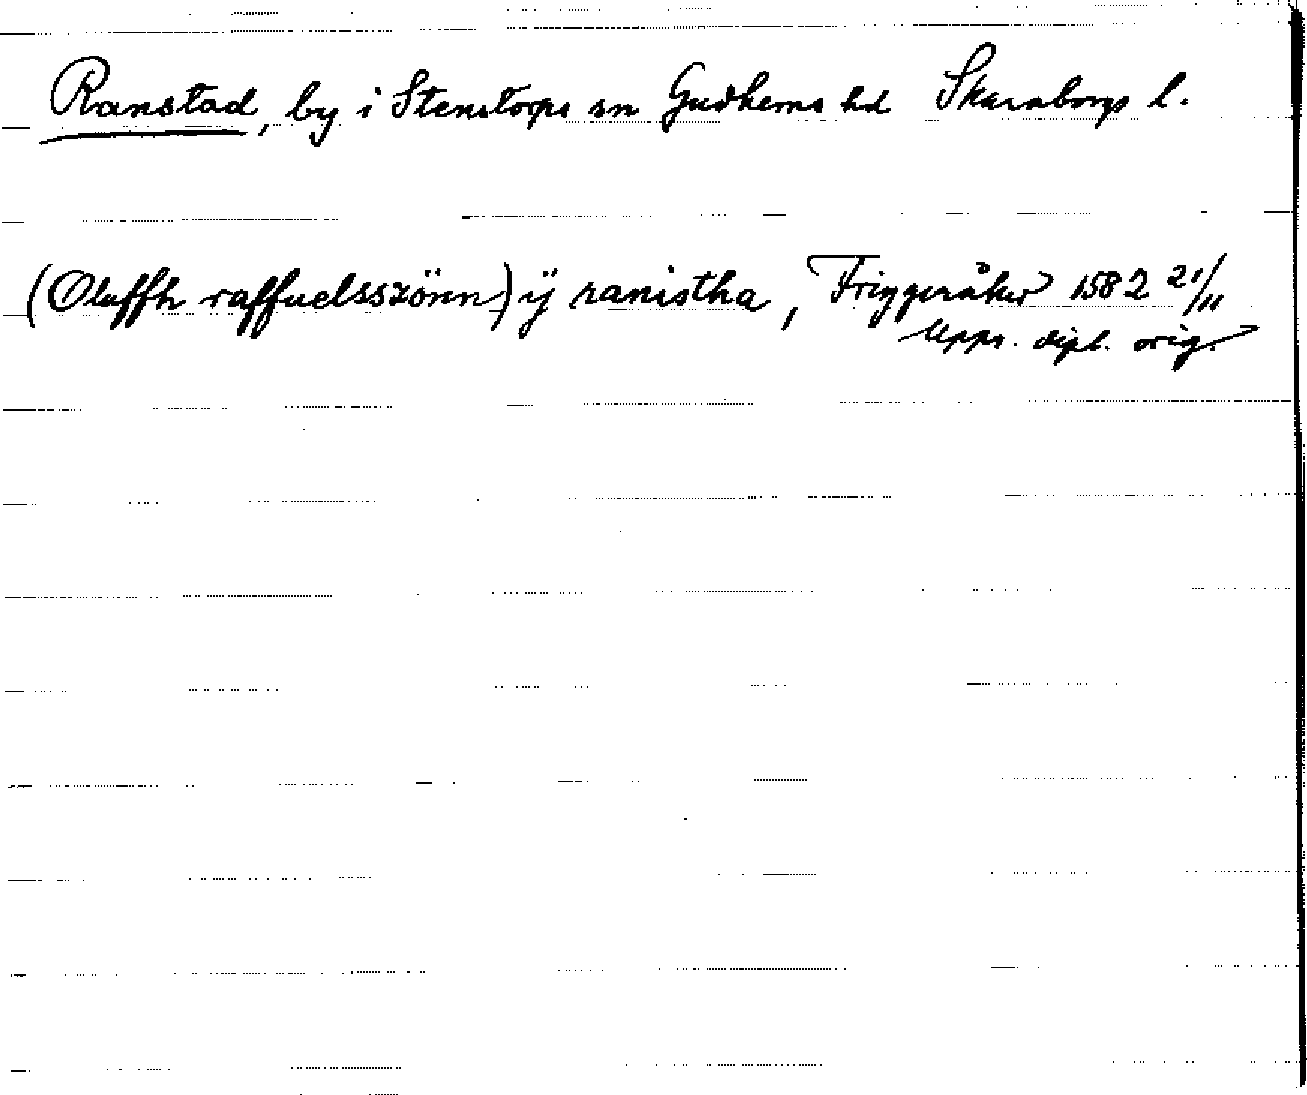 Ranstad, by i Stenstorps sn Gudhems hd Skaraborgs l.
(Oluffh raffuelsszönn) ÿ ranistha, Friggeråker 1582 21/11
Upps. dipl. orig.